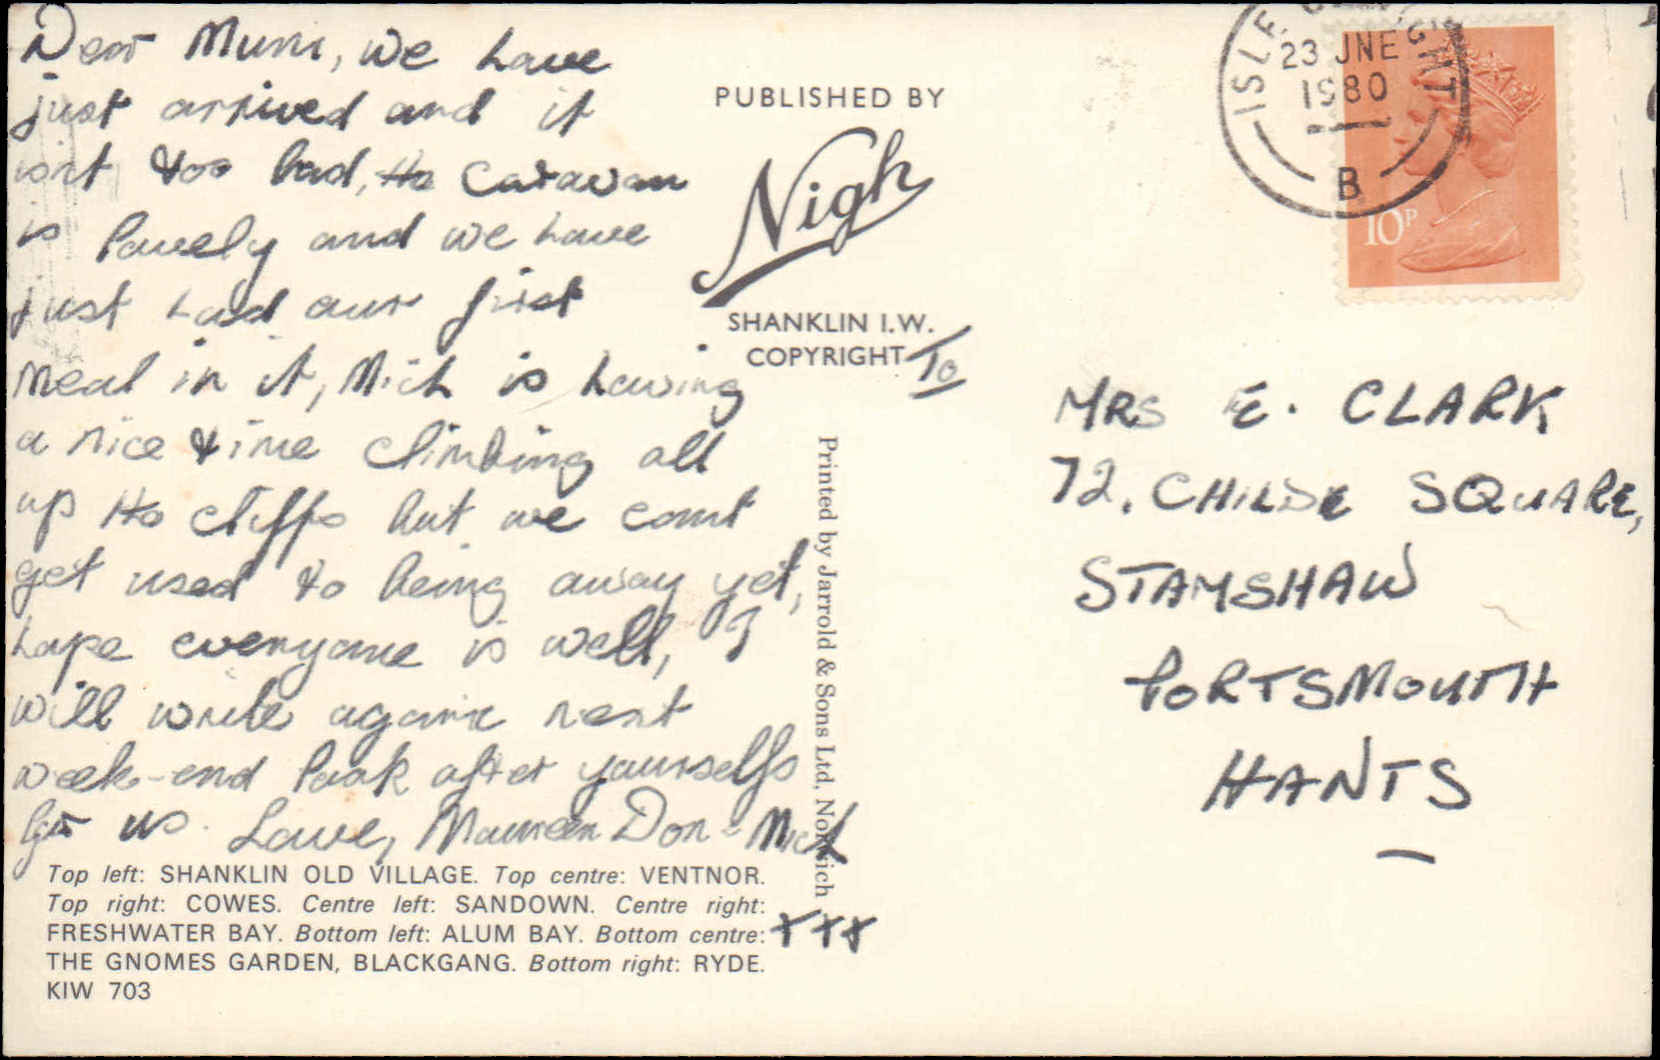 Dear Mum, we have
just arrived and it
isnt too bad, the caravan
is lovely and we have
just had our first
meal in it, Mich is having
a nice time climbing all
up the cliffs but we cant
get used to being away yet,
hope everyone is well, I
will write again next
week-end look after yourselfs
for us. Love, Maureen Don - Mich
xxx
Top left: SHANKLIN OLD VILLAGE. Top centre: VENTNOR.
Top right: COWES. Centre left: SANDOWN. Centre right:
FRESHWATER BAY. Bottom left: ALUM BAY. Bottom centre:
THE GNOMES GARDEN, BLACKGANG. Bottom right: RYDE.
KIW 703
PUBLISHED BY
Nigh
SHANKLIN I.W.
COPYRIGHT
Printed by Jarrold & Sons Ltd, Norwich
ISLE OF WIGHT
23 JNE
1980
B
10P
To
MRS E. CLARK
72, CHILDE SQUARE,
STAMSHAW
PORTSMOUTH
HANTS